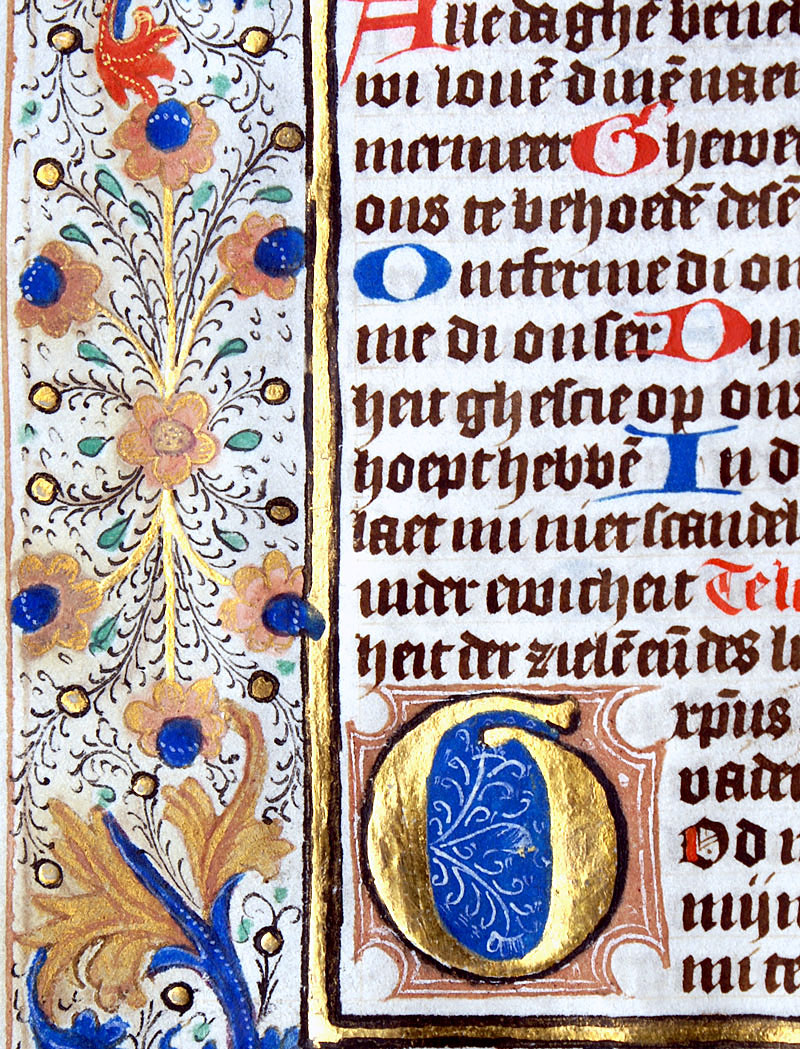 Alle daghe bened
wi louē dinē naem
mermeer Ghewe
ons te behoedē desē
Ontferme di on
me di onser Dijn
heit ghescie op ons
hoept hebbē In d
laet mi niet scandel
inder ewicheit Te lo
heit der zielē eñ des li
xp̄us
vader
God
mijn
mi te